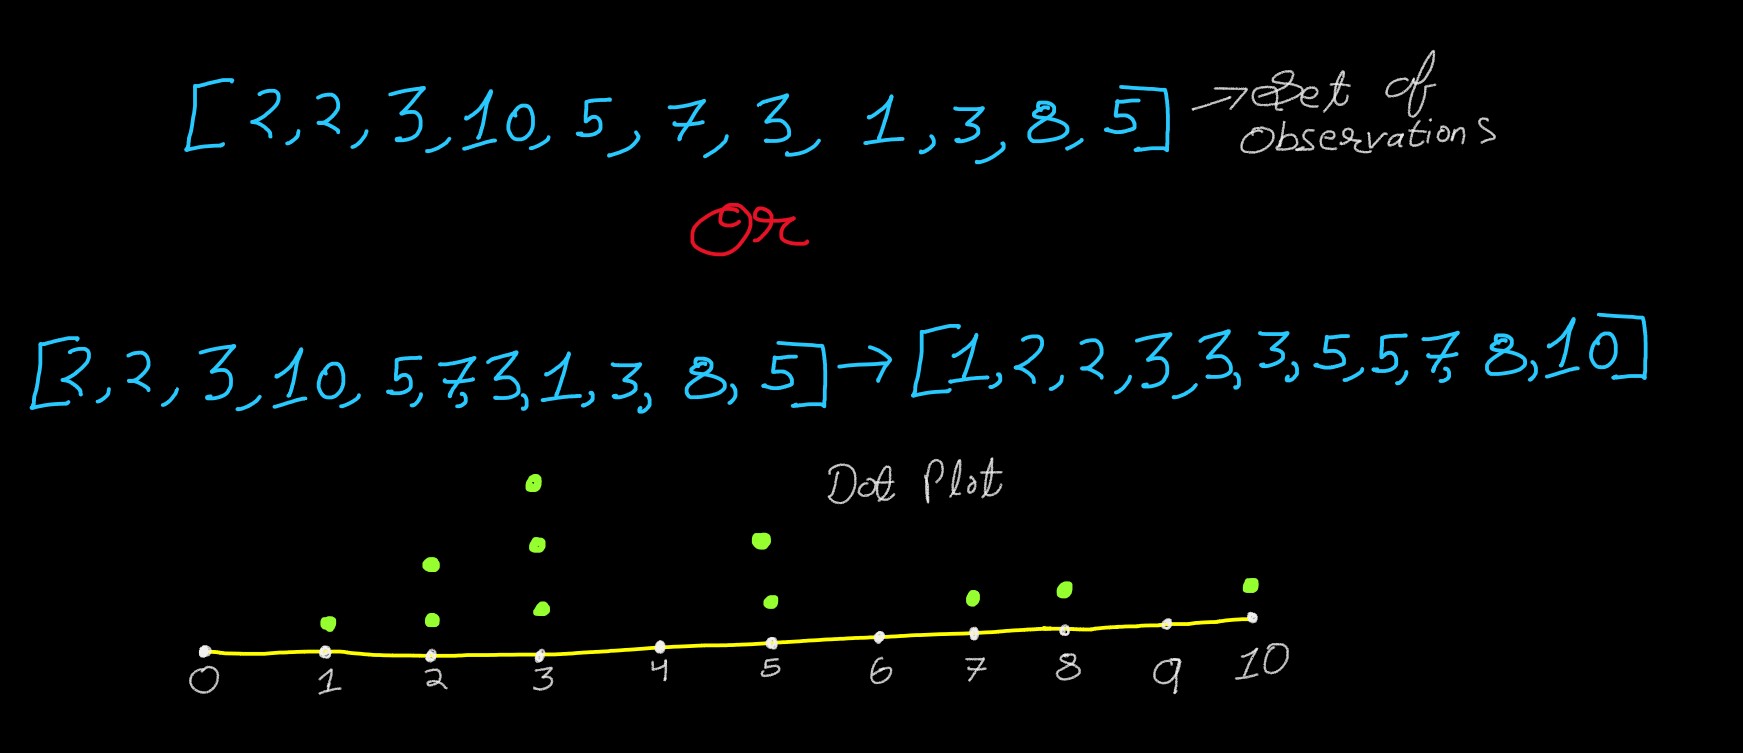 [2,2,3,10,5,7,3,1,3,8,5] → Set of
Observations
Or
[2,2,3,10,5,7,3,1,3,8,5] → [1,2,2,3,3,3,5,5,7,8,10]
Dot Plot
0 1 2 3 4 5 6 7 8 9 10